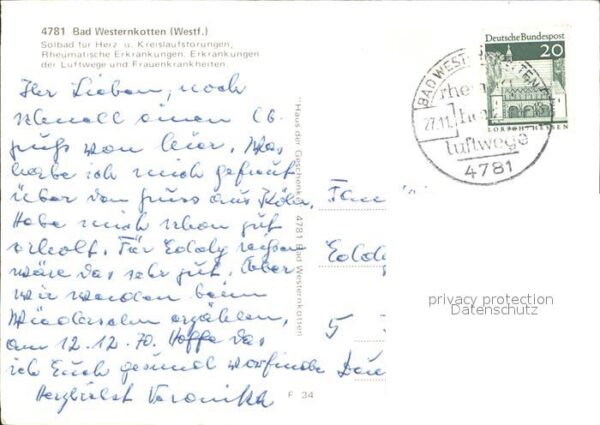 4781 Bad Westernkotten (Westf.)
Solbad für Herz u. Kreislaufstörungen,
Rheumatische Erkrankungen, Erkrankungen
der Luftwege und Frauenkrankheiten.
Ihr Lieben, noch
schnell einen Ab.
gruß von hier. Was
habe ich mich gefreut
über den Gruss aus Köln.
Habe mich schon gut
erholt. Für Eddy
wäre das sehr gut. Aber
wir werden beim
Wiedersehn erzählen,
am 12.12.70. Hoffe das
ich Euch gesund vorfinde
Herzlichst Veronika
"Haus der Geschenke" 4781 Bad Westernkotten
F 34
Deutsche Bundespost
20
LORSCH/HESSEN
BAD WESTERNKOTTEN
rheuma
27.11. herz
luftwege
4781
Fam
Eddy
5
privacy protection
Datenschutz